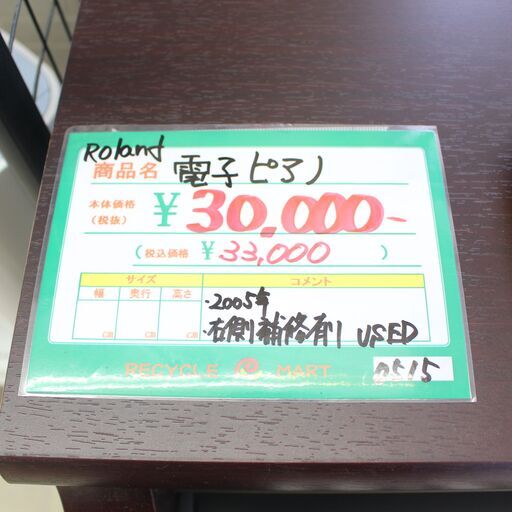 Roland
商品名 電子ピアノ
本体価格
(税抜) ¥30,000-
(税込価格 ¥33,000 )
サイズ コメント
幅 奥行 高さ
・2005年
cm cm cm
・右側補修有り USED
RECYCLE MART 0515